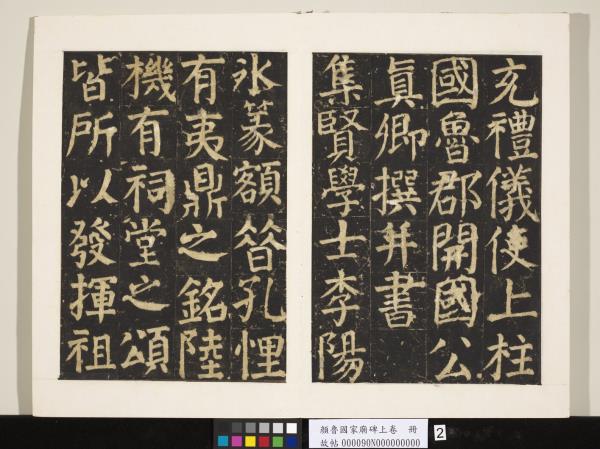 充禮儀使上柱
國魯郡開國公
真卿撰并書
集賢學士李陽
氷篆額昝孔悝
有夷鼎之銘陸
機有祠堂之頌
皆所以發揮祖
顏魯國家廟碑上卷 冊
故帖 000090N000000000
2